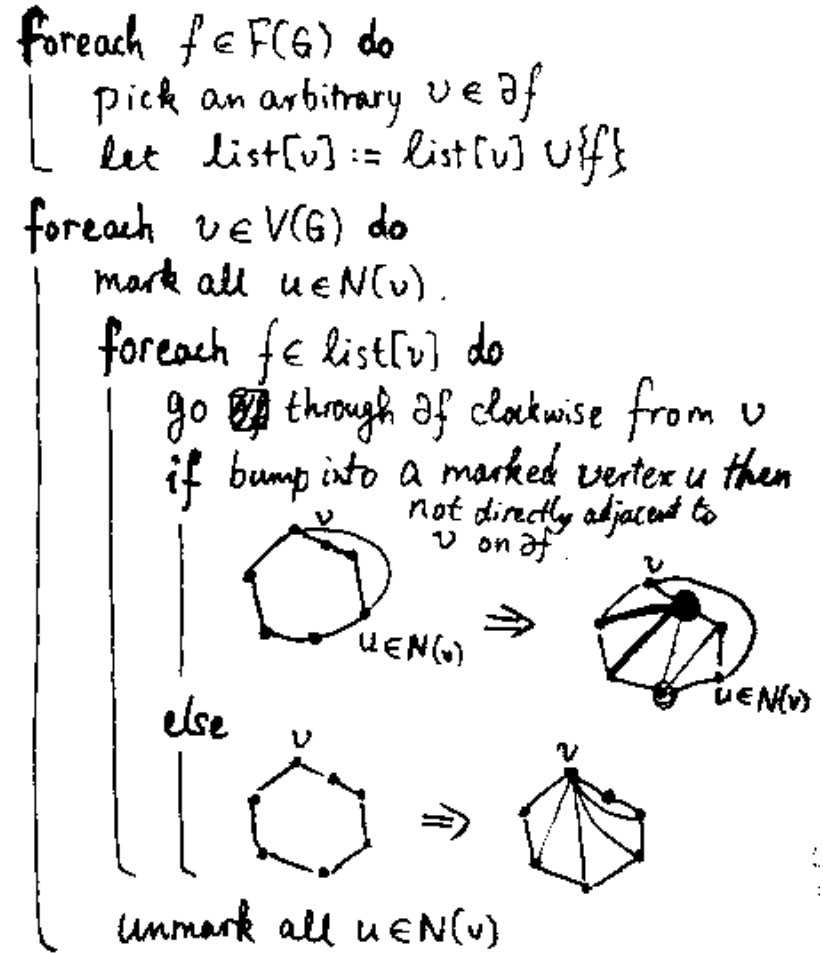 foreach f ∈ F(G) do
pick an arbitrary v ∈ ∂f
let list[v] := list[v] ∪{f}
foreach v ∈ V(G) do
mark all u ∈ N(v).
foreach f ∈ list[v] do
go through ∂f clockwise from v
if bump into a marked vertex u then
not directly adjacent to
v on ∂f.
v
v
u ∈ N(v)
⇒
u ∈ N(v)
else
v
⇒
v
unmark all u ∈ N(v)